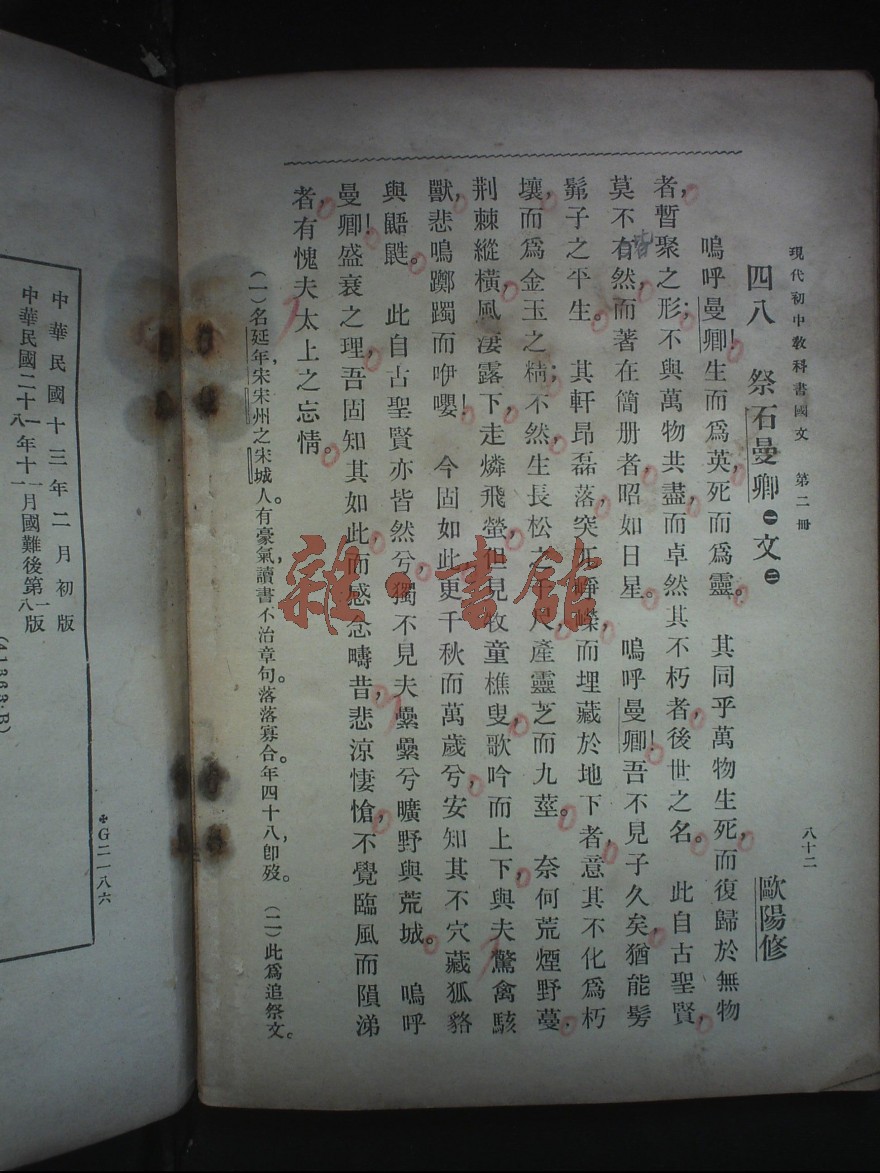 現代初中敎科書國文　第二冊
八十二
四八　祭石曼卿㊀文㊁　　歐陽修
嗚呼曼卿！生而爲英，死而爲靈。　其同乎萬物生死，而復歸於無物
者，暫聚之形；不與萬物共盡，而卓然其不朽者，後世之名。　此自古聖賢，
莫不皆然，而著在簡册者，昭如日星。　嗚呼曼卿！吾不見子久矣，猶能髣
髴子之平生。　其軒昂磊落，突兀崢嶸，而埋藏於地下者，意其不化爲朽
壤，而爲金玉之精；不然，生長松之千尺，產靈芝而九莖。　奈何荒煙野蔓，
荆棘縱橫，風淒露下，走燐飛螢，但見牧童樵叟，歌吟而上下，與夫驚禽駭
獸，悲鳴躑躅而咿嚶！　今固如此，更千秋而萬歲兮，安知其不穴藏狐貉
與鼯鼪。　此自古聖賢亦皆然兮，獨不見夫纍纍兮曠野與荒城。　嗚呼
曼卿！盛衰之理，吾固知其如此，而感念疇昔，悲涼悽愴，不覺臨風而隕涕
者，有愧夫太上之忘情。
（一）名延年，宋宋州之宋城人。有豪氣，讀書不治章句。落落寡合。年四十八，卽歿。　（二）此爲追祭文。
中華民國十三年二月初版
中華民國二十一年十一月國難後第一版
八　十　八
G二一八六
(41363·B)